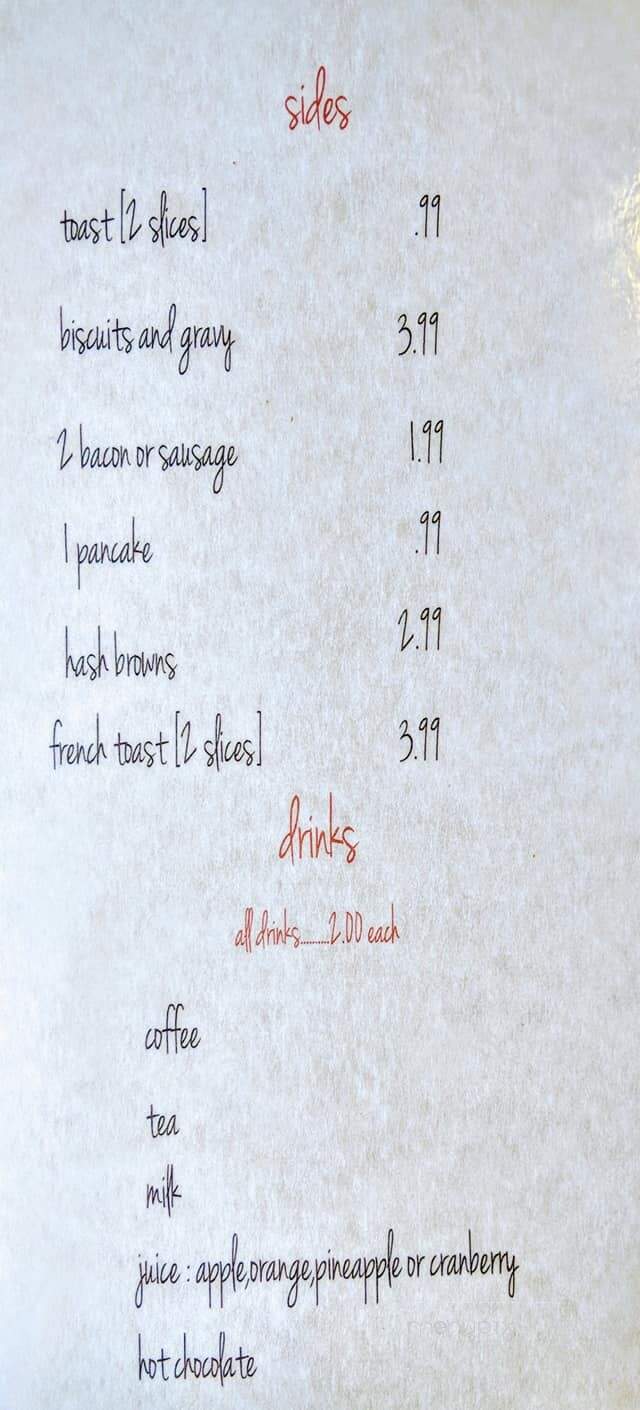 sides
toast [2 slices] .99
biscuits and gravy 3.99
2 bacon or sausage 1.99
1 pancake .99
hash browns 2.99
french toast [2 slices] 3.99
drinks
all drinks.........2.00 each
coffee
tea
milk
juice : apple,orange,pineapple or cranberry
hot chocolate